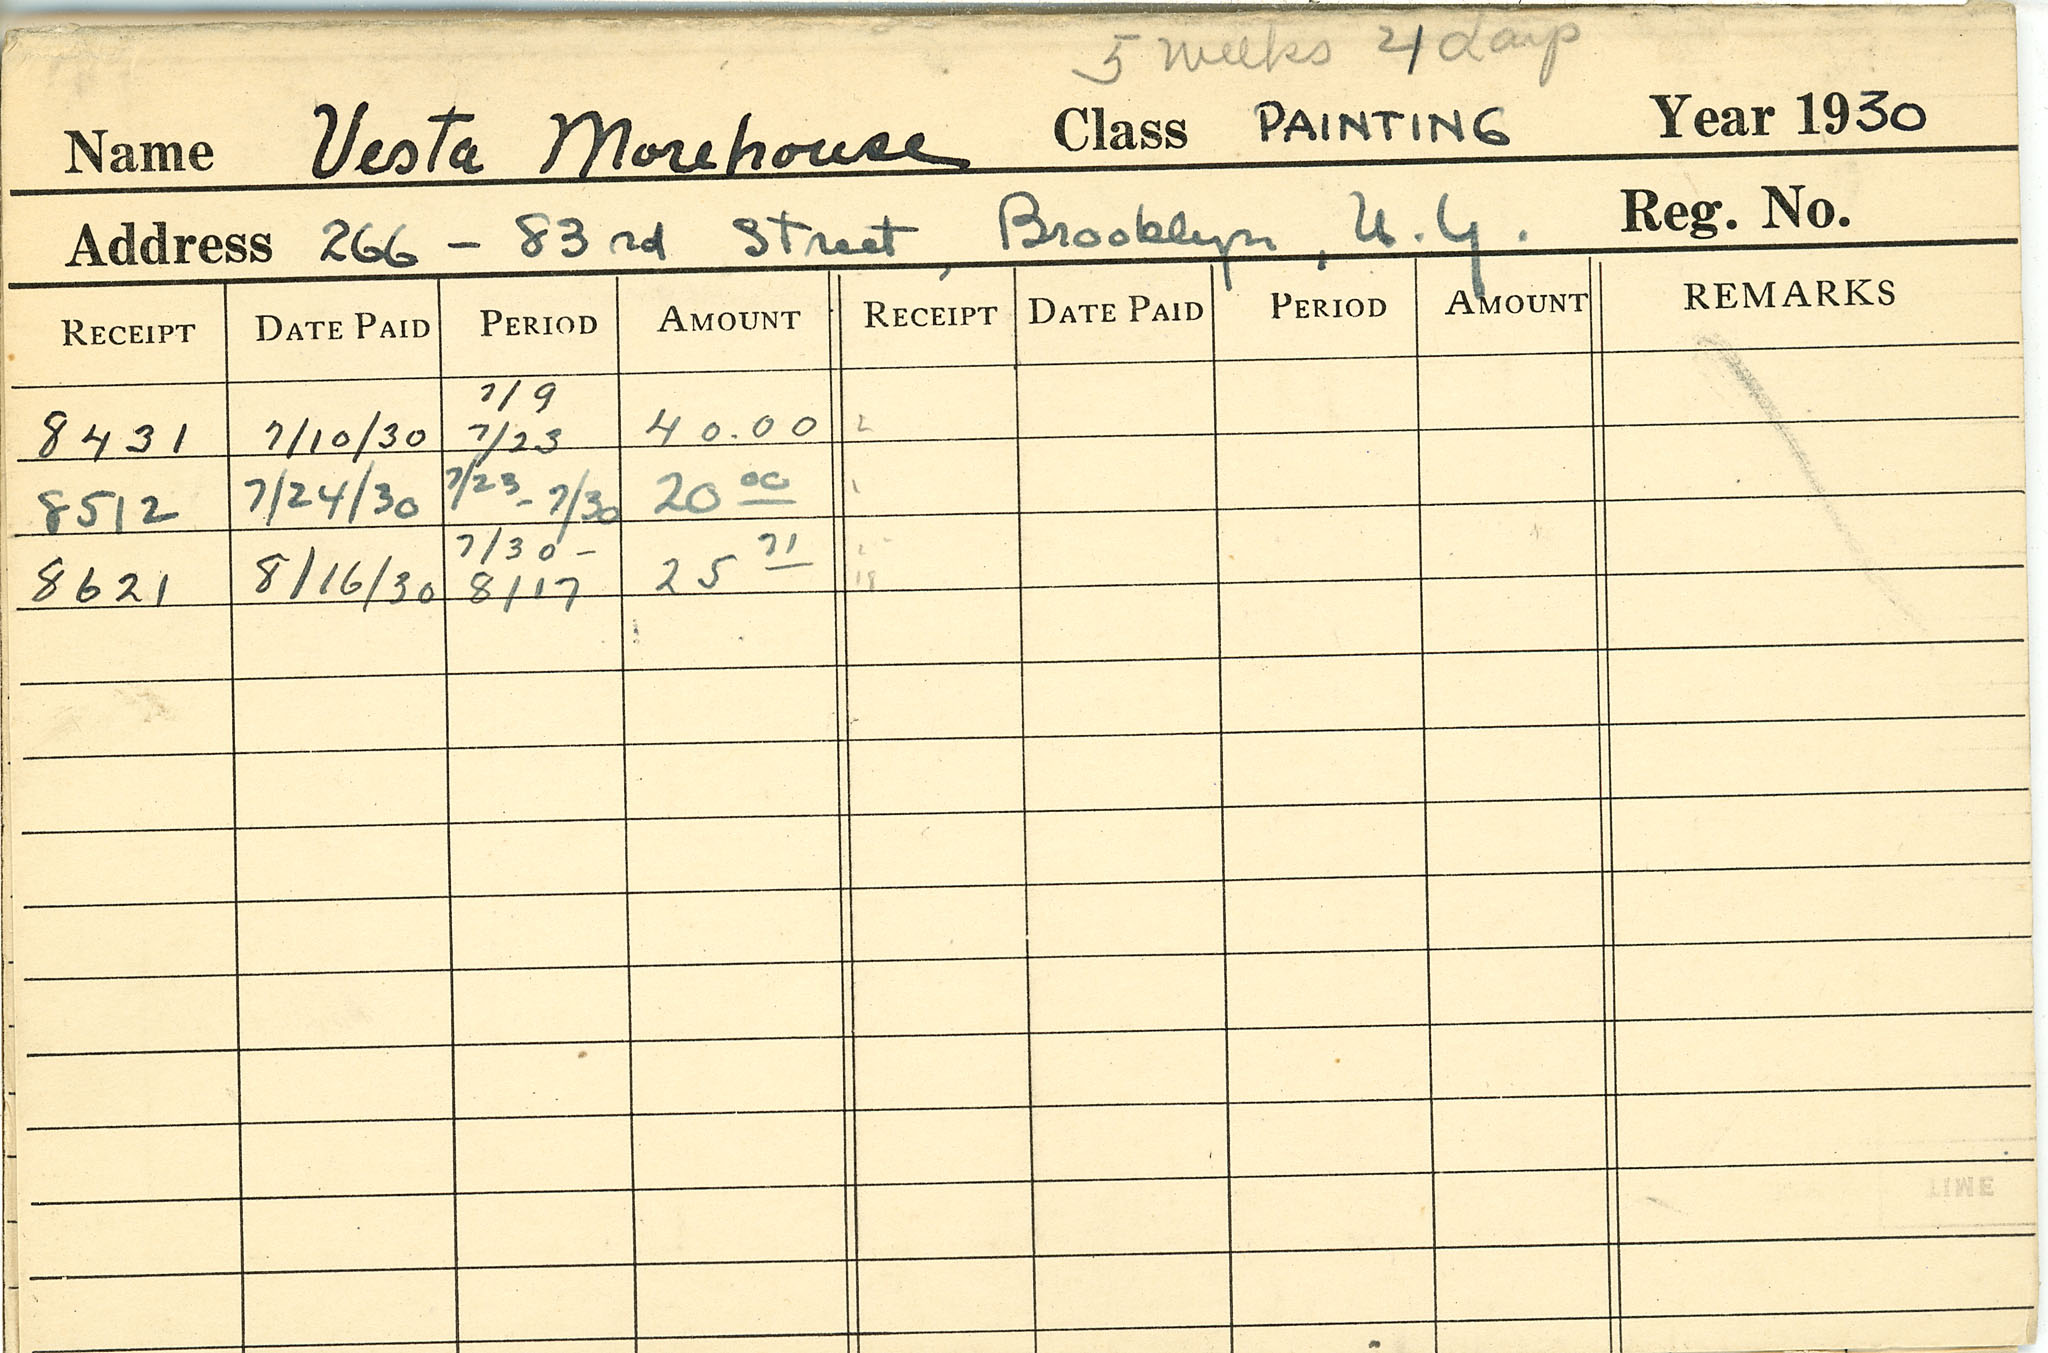 5 weeks 4 days
Name Vesta Morehouse Class PAINTING Year 1930
Address 266 - 83rd Street, Brooklyn, N.Y. Reg. No.
RECEIPT DATE PAID PERIOD AMOUNT RECEIPT DATE PAID PERIOD AMOUNT REMARKS
7/9
8431 7/10/30 7/23 40.00 2
8512 7/24/30 7/23 - 7/30 20 00 1
7/30 - 71
8621 8/16/30 8/17 25
TIME